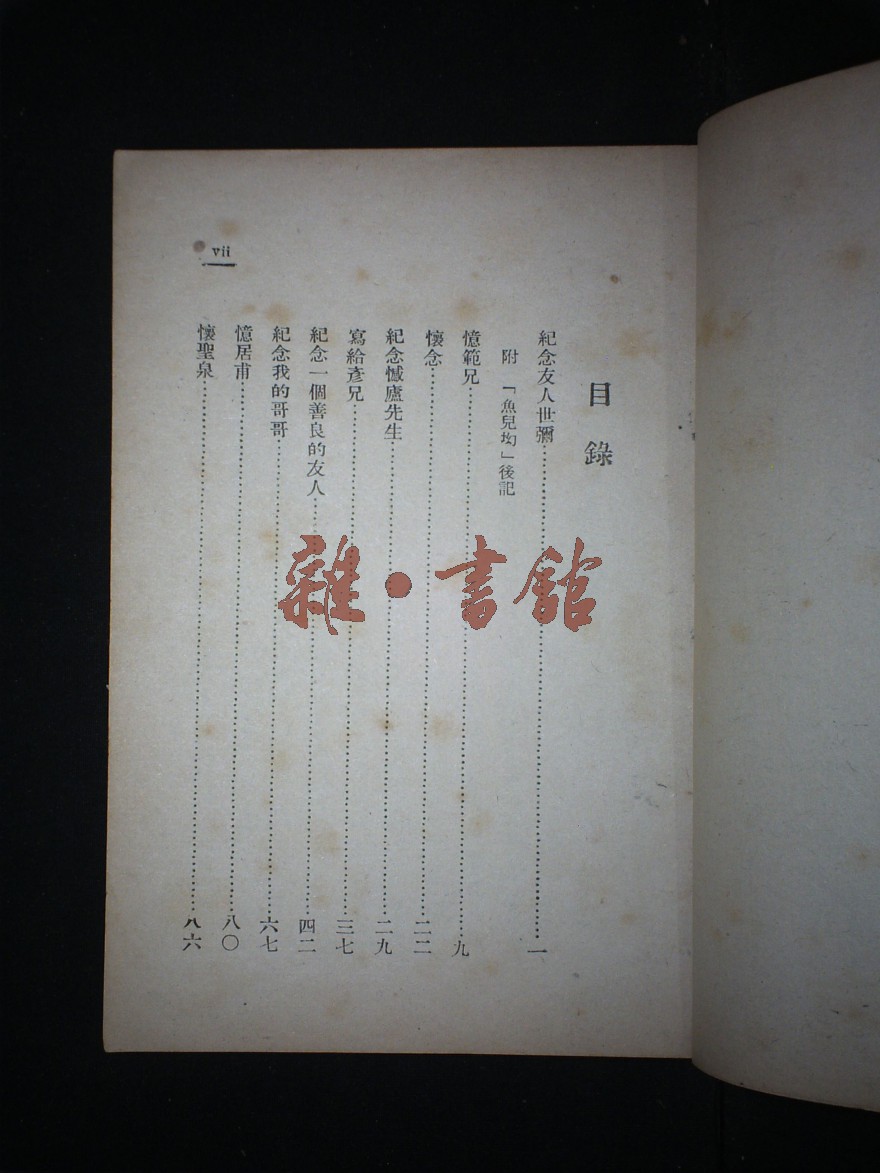 目錄
紀念友人世彌……一
附 「魚兒坳」後記
憶範兄……九
懷念……二二
紀念憾廬先生……二九
寫給彥兄……三七
紀念一個善良的友人……四二
紀念我的哥哥……六七
憶居甫……八〇
懷聖泉……八六
vii
雜·書館